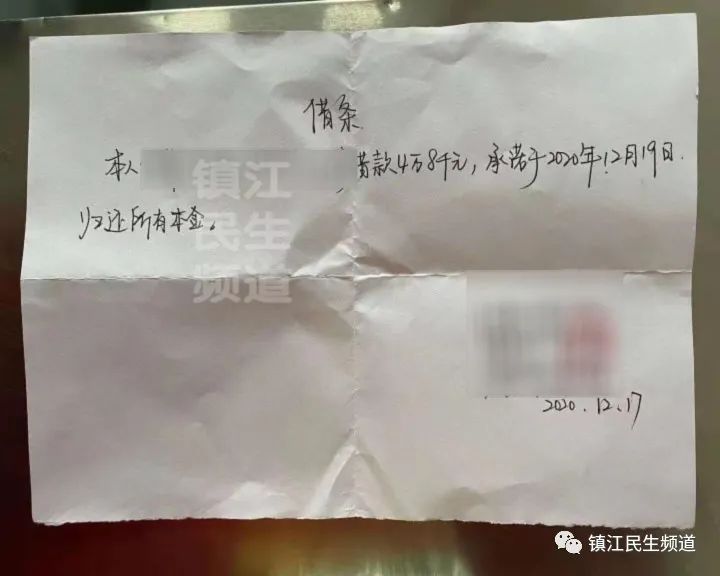 借条
本人 借款4万8千元，承诺于2020年12月19日.
归还所有本金。
2020.12.17
镇江
民生
频道
镇江民生频道